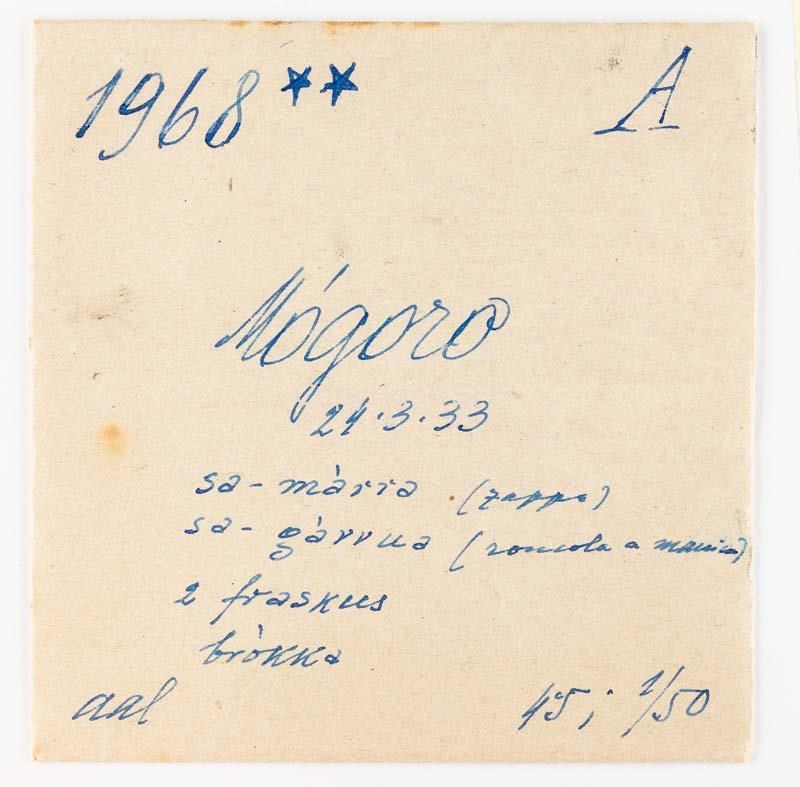 1968 ** A
Mógoro
24.3.33
sa-màrra (zappa)
sa-gàrrua (roncola a manico)
2 fraskus
bròkka
aal 45; 1/50